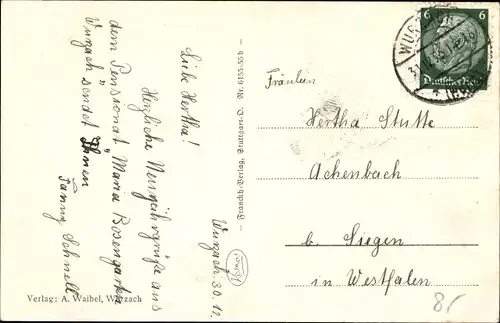 Liebe Hertha!
Herzliche Neujahrsgrüße aus
dem Pensionat "Maria Rosengarten"
Wurzach sendet Ihnen
Fanny Schnell
Wurzach 30.12.
Verlag: A. Waibel, Wurzach
Franckh-Verlag, Stuttgart-O. Nr. 6155-55 b
Fräulein
Hertha Stutte
Achenbach
b. Siegen
in Westfalen
6 6
Deutsches Reich
WURZACH
8/